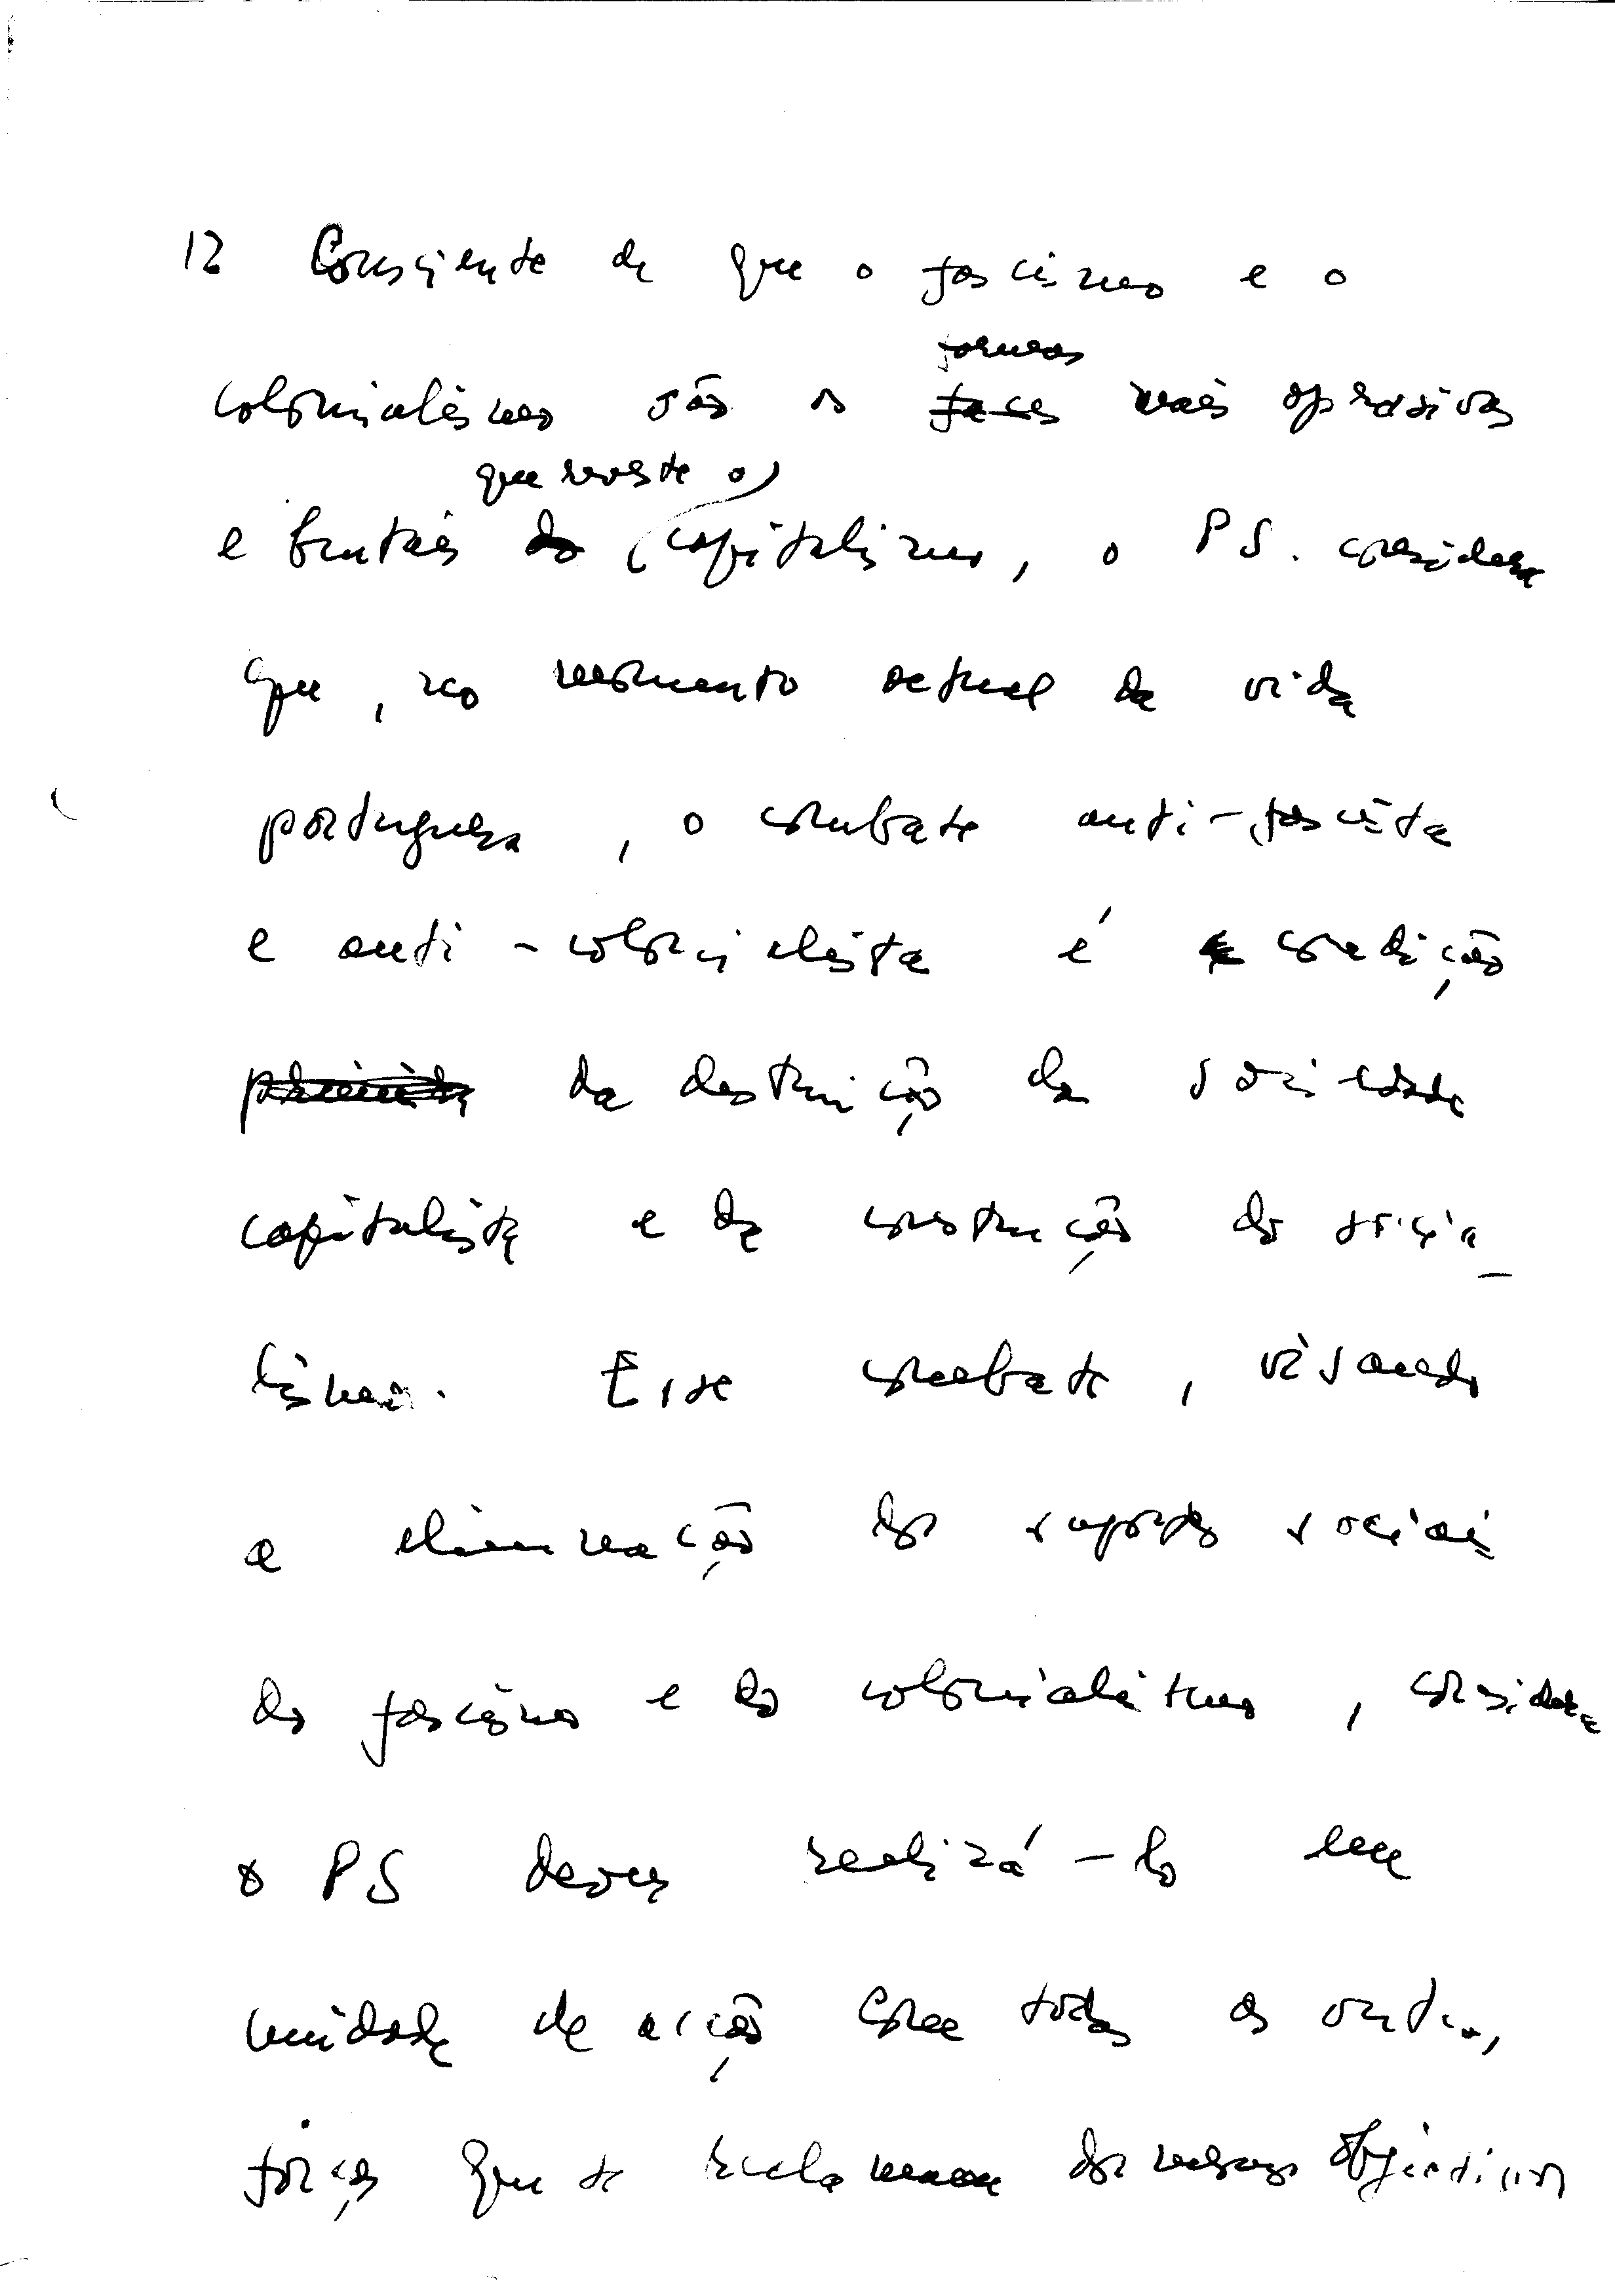 12 Consciente de que o fascismo e o
formas
colonialismo são as faces mais opressivas
que reveste o
e brutais do capitalismo, o PS. considera
que, no momento actual da vida
portuguesa, o combate anti-fascista
e anti-colonialista é a condição
primeira da destruição da sociedade
capitalista e da construção do socia-
lismo. Esse combate, visando
a eliminação dos suportes sociais
do fascismo e do colonialismo, considera
o PS dever realizá-lo em
unidade de acção com todas as outras
forças que se reclamam dos mesmos objectivos